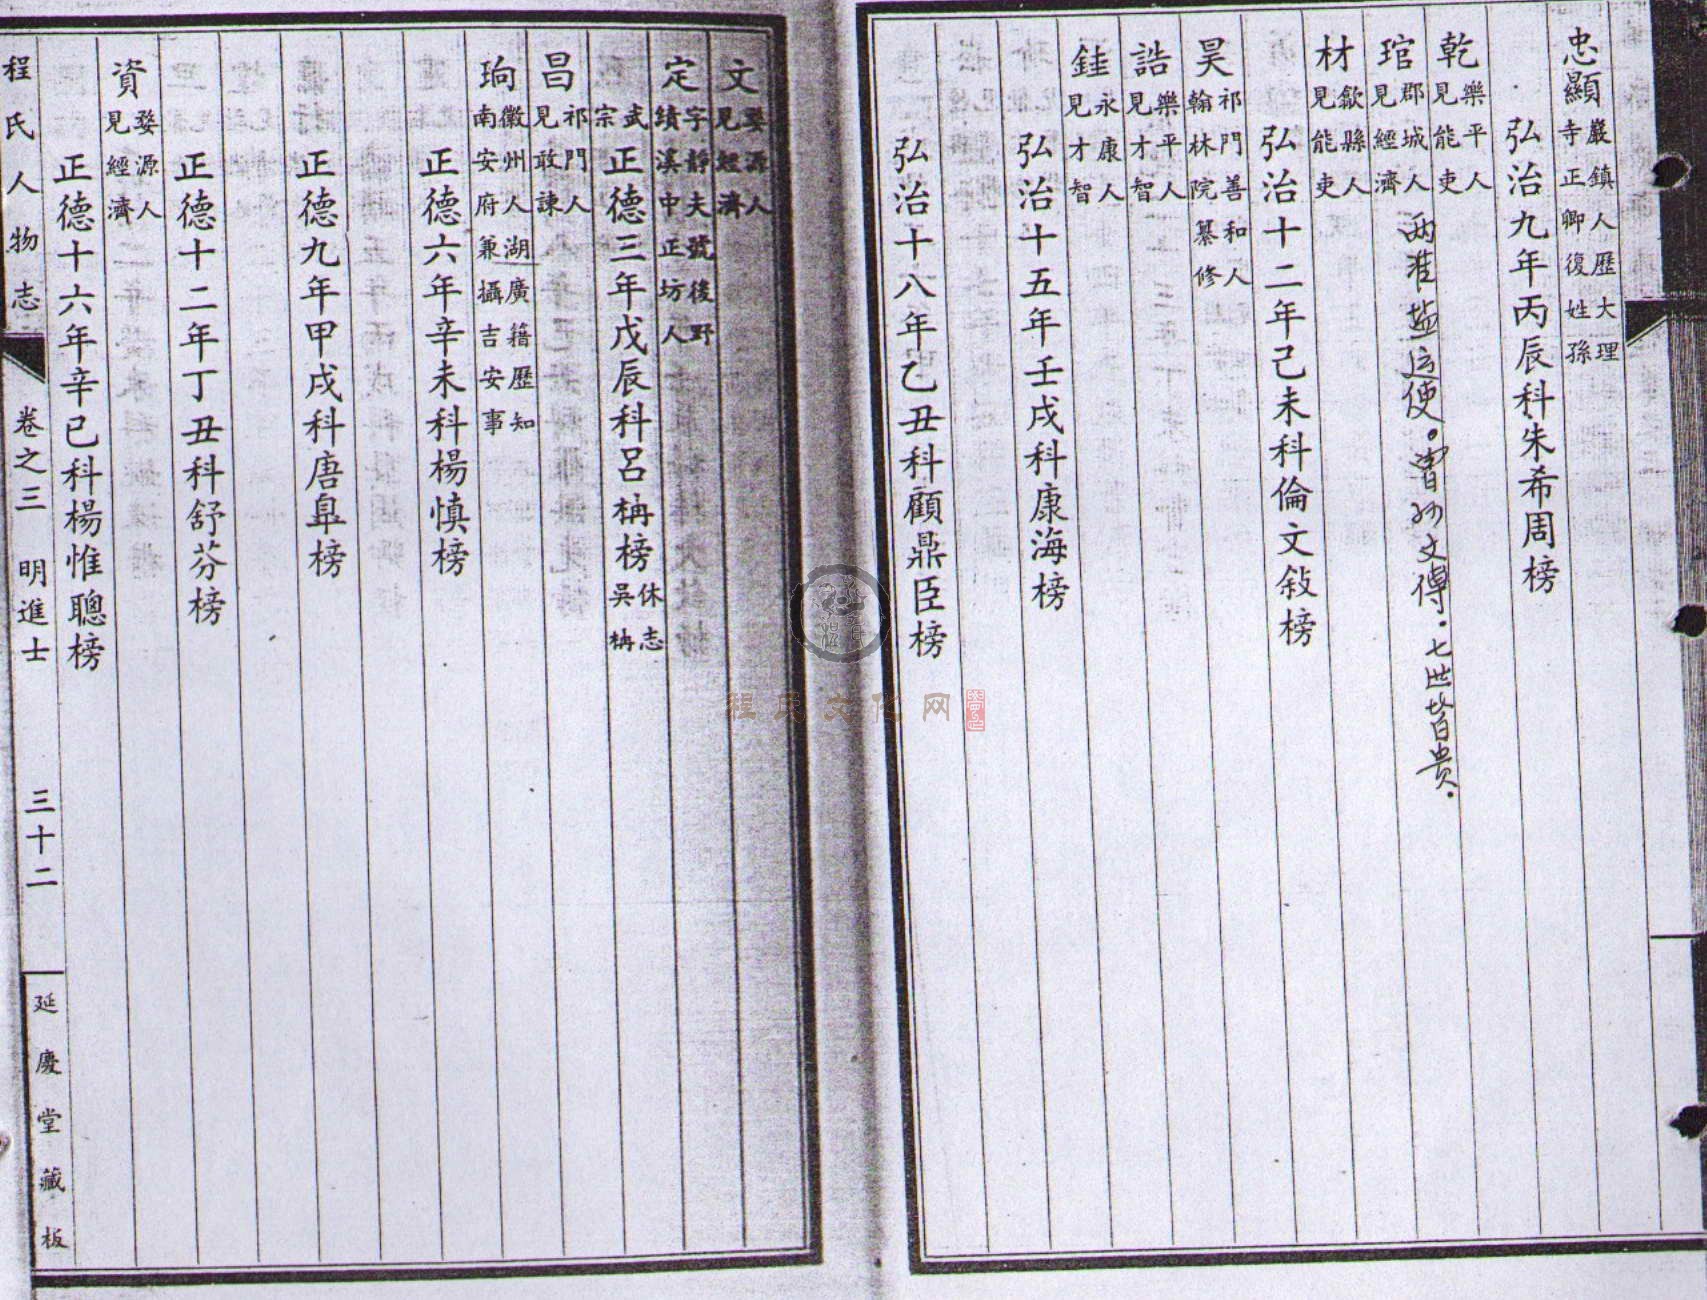 忠顯 巖鎮人歷大理寺正卿復姓孫
弘治九年丙辰科朱希周榜
乾 樂平人見能吏
琯 郡城人見經濟 两淮盐运使。曾孙文傅.七世皆贵.
材 歙縣人見能吏
弘治十二年己未科倫文敍榜
昊 祁門善和人翰林院纂修
誥 樂平人見才智
銈 永康人見才智
弘治十五年壬戌科康海榜
弘治十八年乙丑科顧鼎臣榜
文 婺源人見經濟
定 字靜夫號後野績溪中正坊人
武宗 正德三年戊辰科呂柟榜 休志吳柟
昌 祁門人見敢諫
珦 徽州人湖廣籍歷知南安府兼攝吉安事
正德六年辛未科楊慎榜
正德九年甲戌科唐皐榜
正德十二年丁丑科舒芬榜
資 婺源人見經濟
正德十六年辛巳科楊惟聰榜
程氏人物志 卷之三 明進士 三十二 延慶堂藏板
程氏文化网